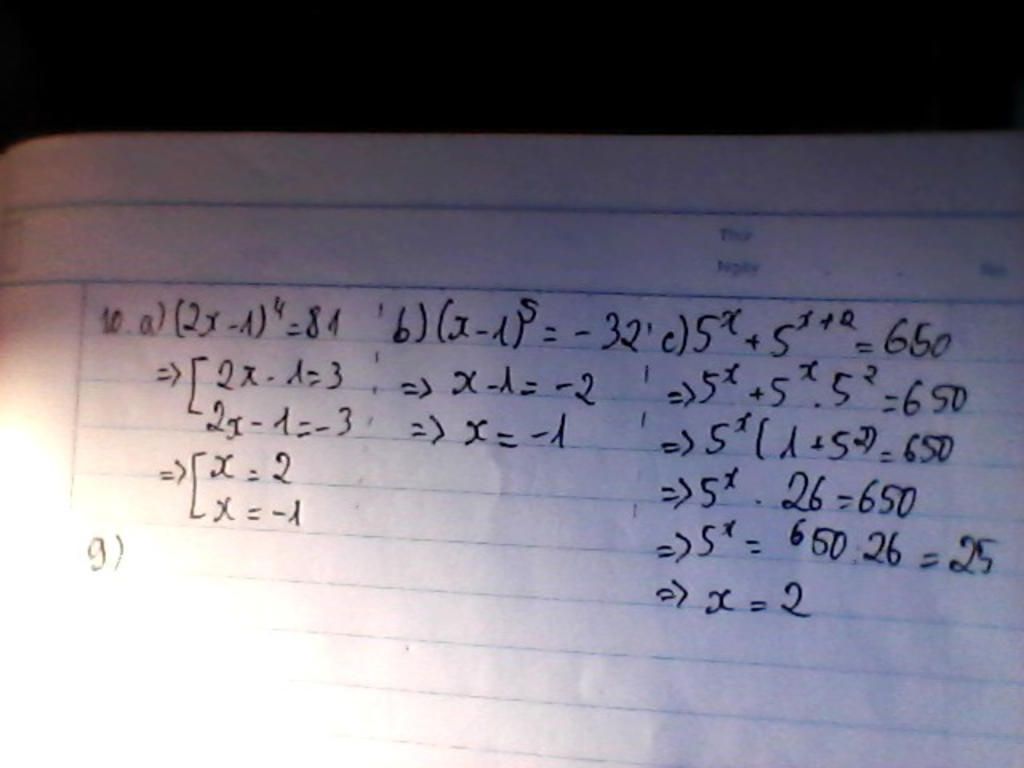 Thứ
Ngày
No
10. a) (2x-1)⁴=81
=> [2x-1=3
2x-1=-3
=> [x=2
x=-1
b) (x-1)⁵=-32
=> x-1=-2
=> x=-1
c) 5ˣ+5ˣ⁺²=650
=> 5ˣ+5ˣ.5²=650
=> 5ˣ(1+5²)=650
=> 5ˣ.26=650
=> 5ˣ=650:26=25
=> x=2
9)